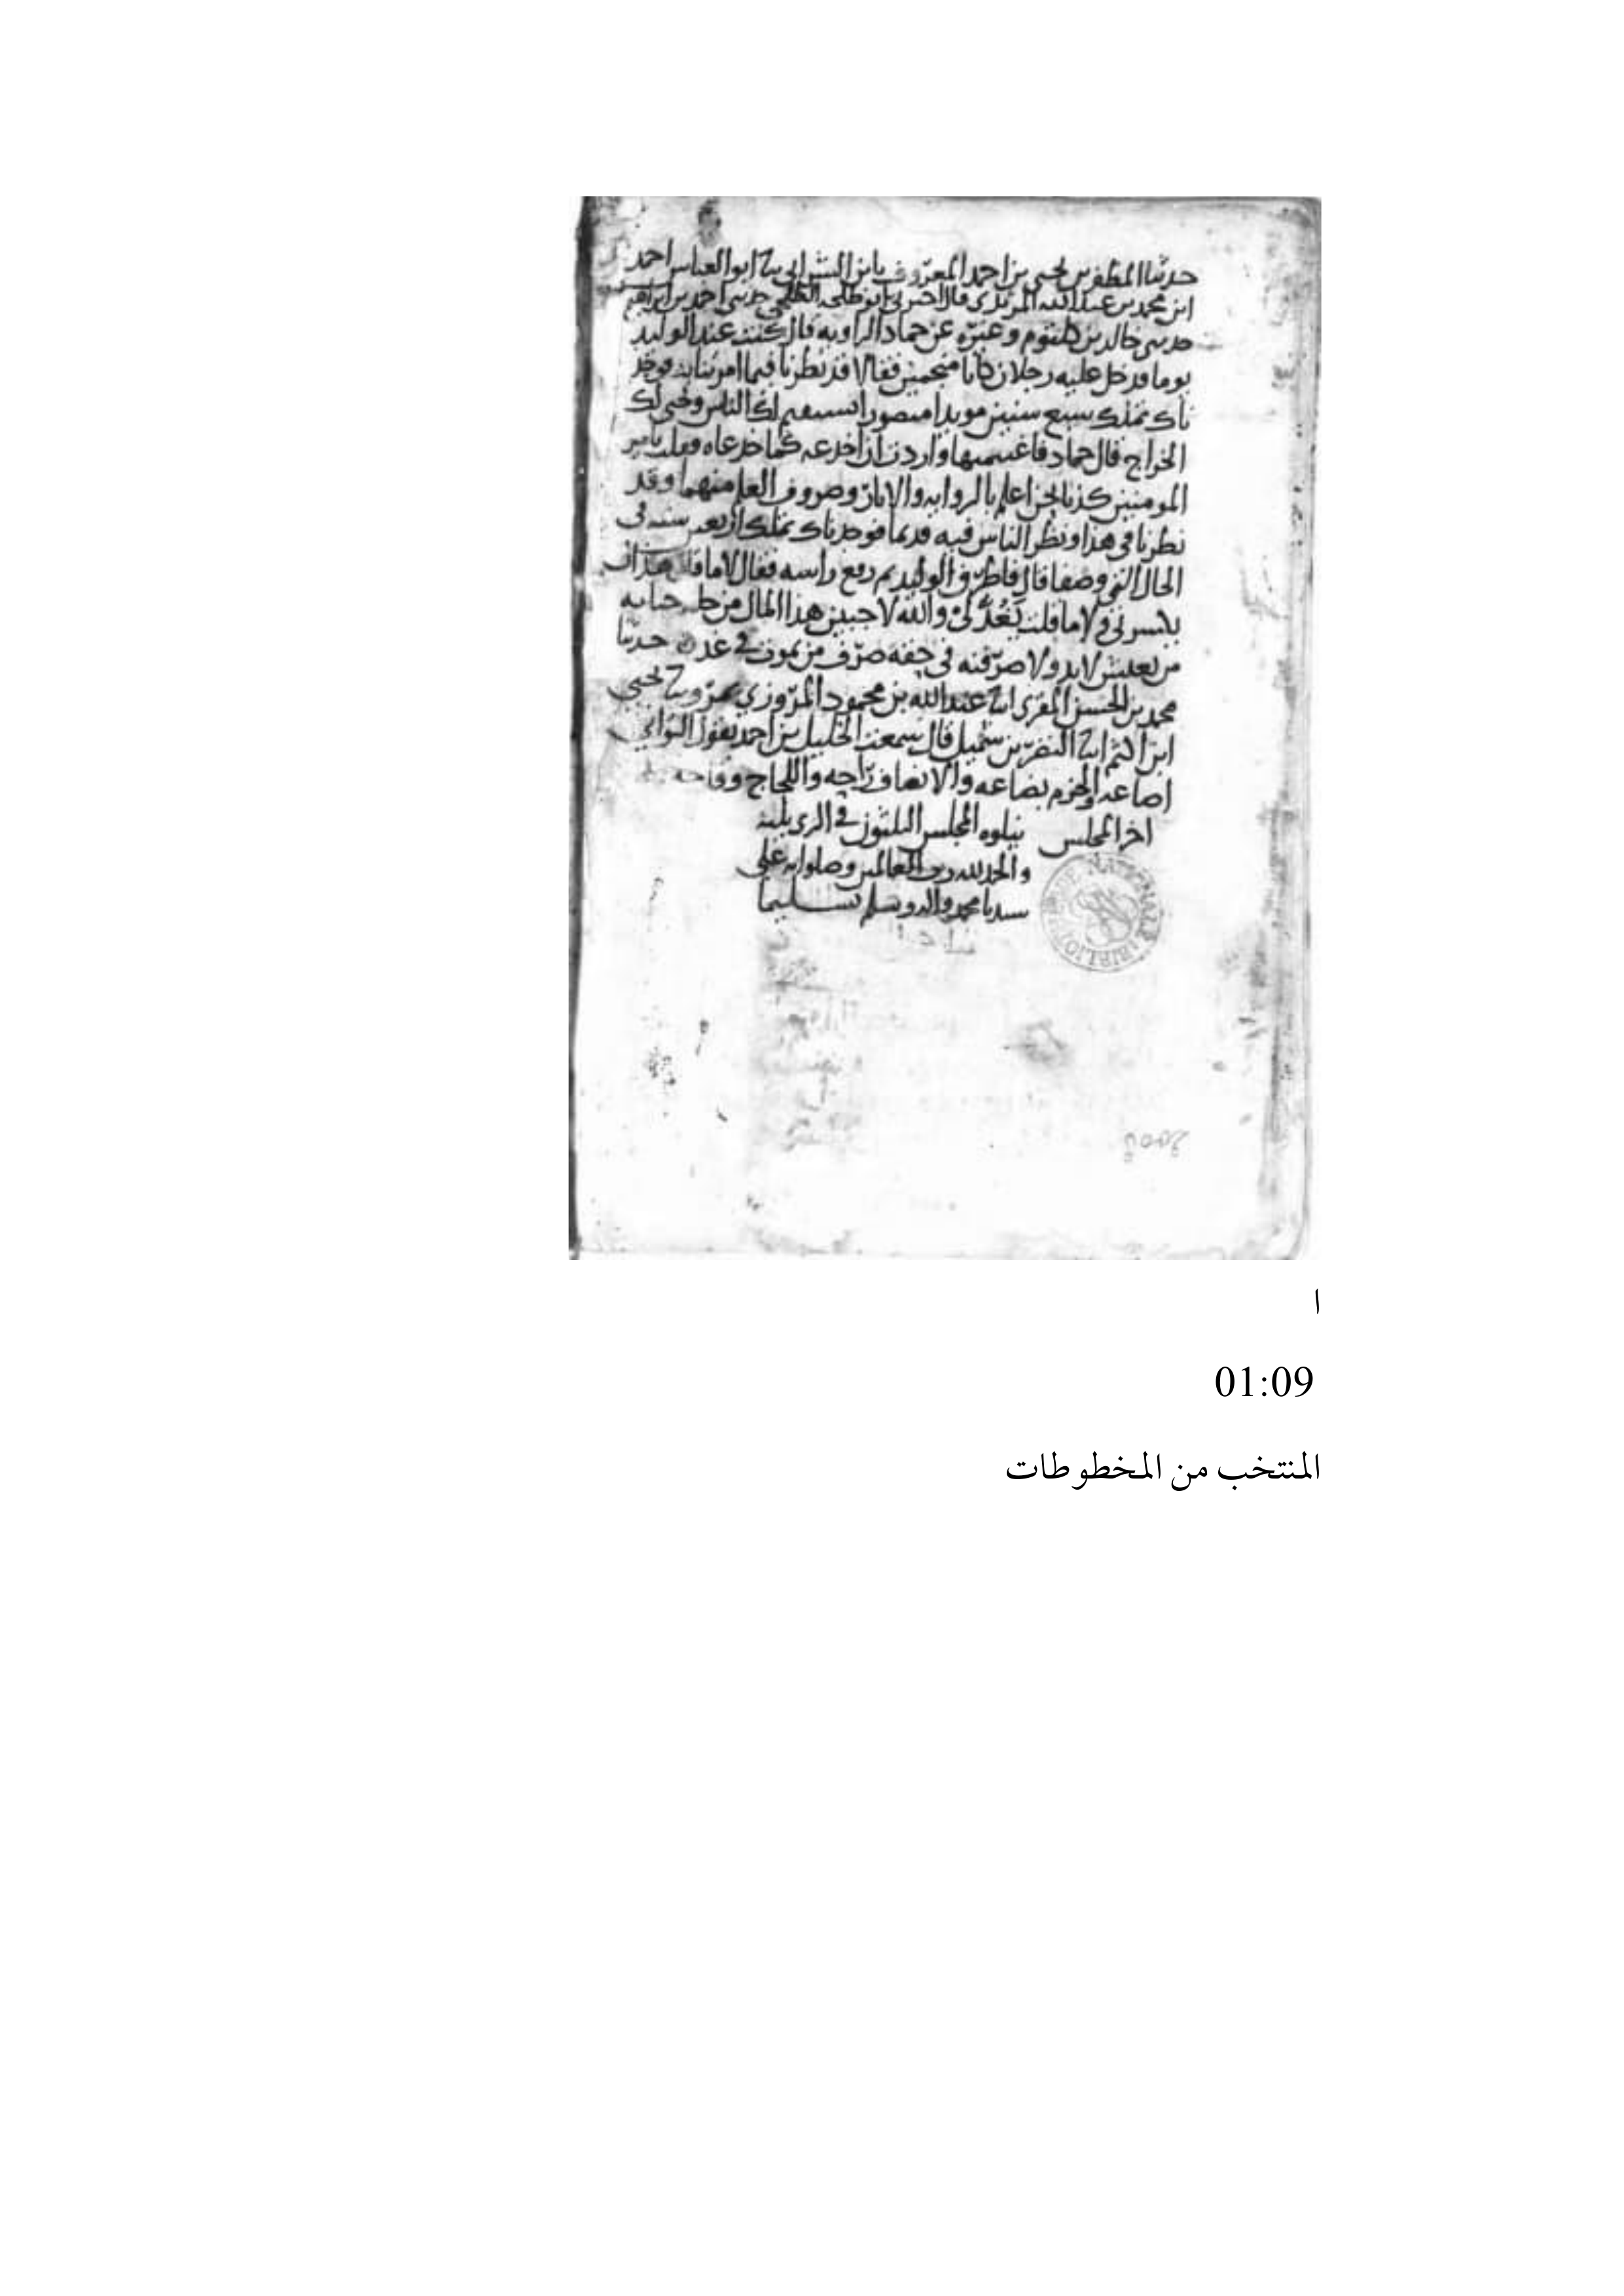 حدثنا المظفر بن يحيى بن احمد المعروف بابن الشرابي ثنا ابو العباس احمد
ابن محمد بن عبد الله المرثدي قال اخبرني ابو طلحة حدثني احمد بن ابراهيم
حدثني خالد بن كلثوم وغيره عن حماد الراوية قال كنت عند الوليد
يوما فدخل عليه رجلان كانا منجمين فقالا قد نظرنا فيما امرتنا به فوجد
ناك تملك سبع سنين مويدا منصورا يستقيم لك الناس ويجبى لك
الخراج قال حماد فاغتنمتها واردت ان اخدعه كما خدعاه فقلت يامير
المومنين كذبا نحن اعلم بالرواية والاثار وضروف العلم منهما وقد
نظرنا في هذا ونظر الناس فيه قديما فوجدناك تملك اربعين سنة في
الحال التي وصفا قال فاطرق الوليد ثم رفع راسه فقال لا ما قالا هذان
يكسرني ولا ما قلت يغرني والله لاجبين هذا المال من حله جباية
من يعيش الابد ولا صرفنه في حقه صرف من يموت في غد حدثنا
محمد بن الحسن المقرئ انا عبد الله بن محمود المروزي بمرو ثنا يحيى
ابن اكثم انا النضر بن شميل قال سمعت الخليل بن احمد يقول التواني
اضاعة والحزم بضاعة والانصاف راحة واللجاج وقاحة
اخر المجلس يتلوه المجلس الثلثون في الذي يليه
والحمد لله رب العالمين وصلواته على
سيدنا محمد واله وسلم تسليما
ا
01:09
المنتخب من المخطوطات